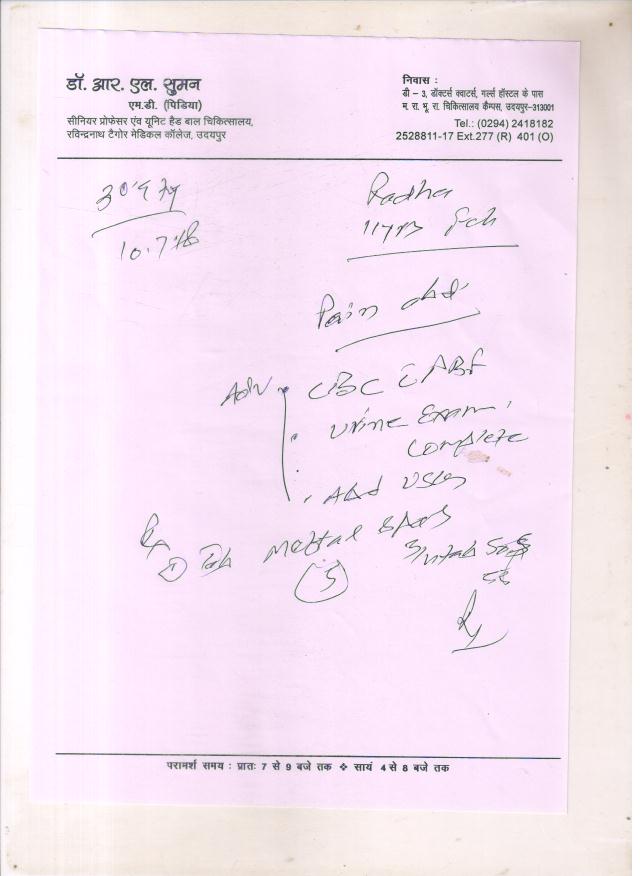 डॉ. आर. एल. सुमन
एम.डी. (पिडिया)
सीनियर प्रोफेसर एंव यूनिट हैड बाल चिकित्सालय,
रविन्द्रनाथ टैगोर मेडिकल कॉलेज, उदयपुर
निवास :
डी – 3, डॉक्टर्स क्वाटर्स, गर्ल्स हॉस्टल के पास
म. रा. भू. रा. चिकित्सालय कैम्पस, उदयपुर-313001
Tel.: (0294) 2418182
2528811-17 Ext.277 (R) 401 (O)
Radha
11yrs
Pain abd.
Adv. CBC
Urine Exam.
Complete
Abd USG
Rx
① Tab Meftal Spas
(5)
परामर्श समय : प्रातः 7 से 9 बजे तक ❖ सायं 4 से 8 बजे तक